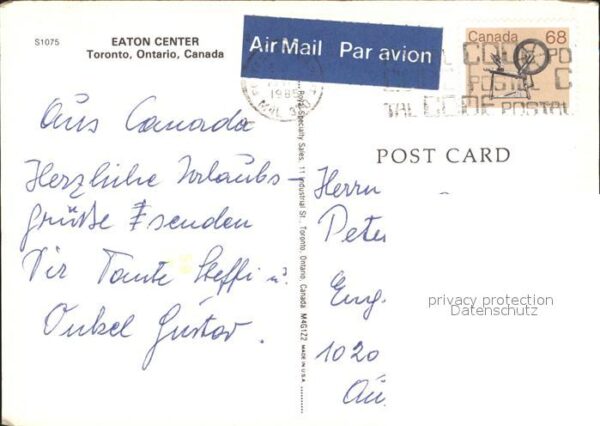 S1075
EATON CENTER
Toronto, Ontario, Canada
Air Mail Par avion
Canada 68
1985
POSTAL CODE
POSTAL C
TAL CODE POSTAL
Aus Canada
Herzliche Urlaubs-
grüße senden
Dir Tante Steffi u.
Onkel Gustav.
Royal Specialty Sales, 11 Industrial St., Toronto, Ontario, Canada M4G1Z2 MADE IN U.S.A.
POST CARD
Herrn
Peter
Eng.
1020
privacy protection
Datenschutz